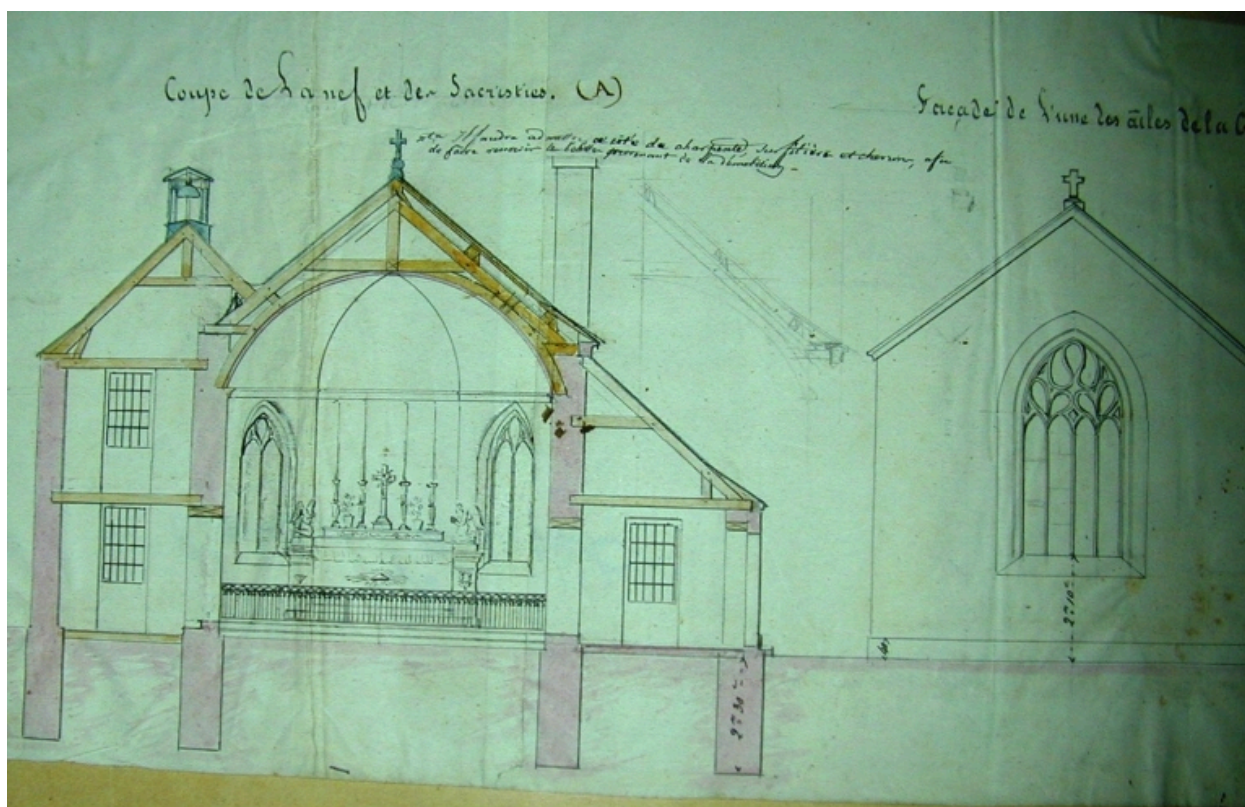 Coupe de La nef et des Sacristies. (A)
Façade de L'une des ailes de la
il faudra ce côté de charpente sur filière et chevron, afin
de faire resservir le provenant de la démolition
2m 10c
2m 30